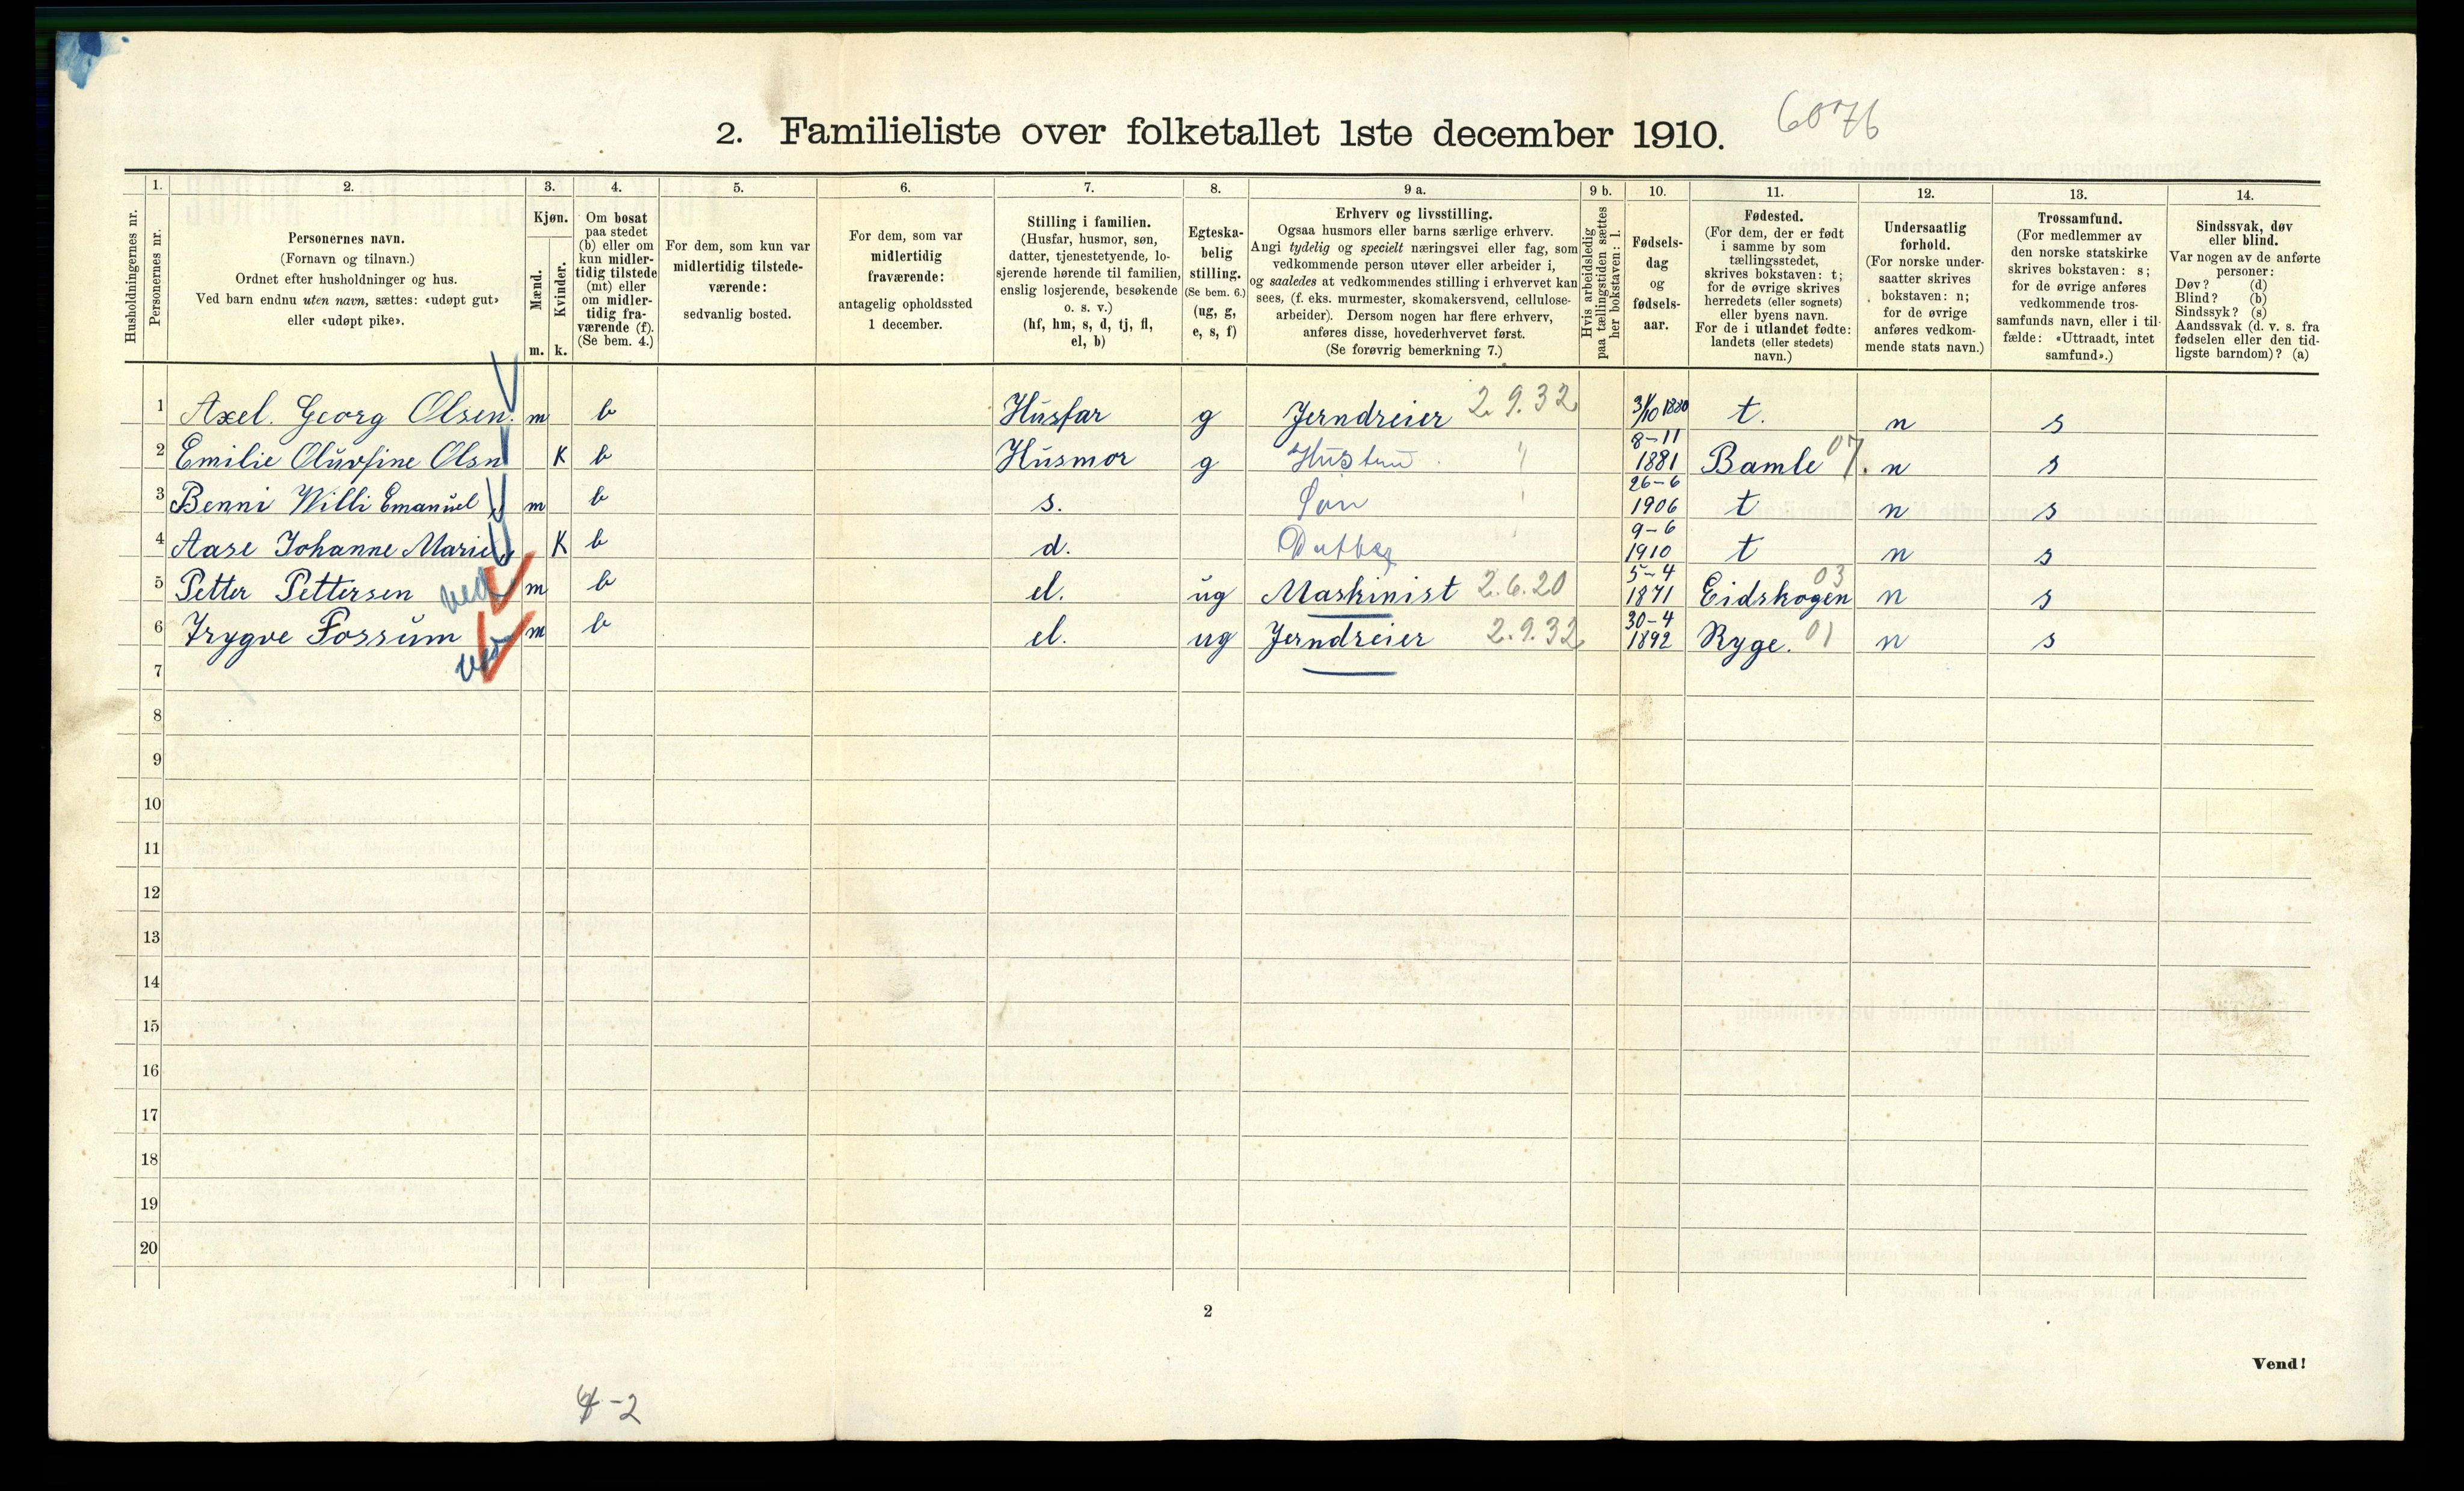 6076
2. Familieliste over folketallet 1ste december 1910.
1. 2. 3. 4. 5. 6. 7. 8. 9 a. 9 b. 10. 11. 12. 13. 14.
Husholdningernes nr.
Personernes nr.
Personernes navn.
(Fornavn og tilnavn.)
Ordnet efter husholdninger og hus.
Ved barn endnu uten navn, sættes: «udøpt gut»
eller «udøpt pike».
Kjøn.
Mænd.
Kvinder.
m. k.
Om bosat
paa stedet
(b) eller om
kun midler-
tidig tilstede
(mt) eller
om midler-
tidig fra-
værende (f).
(Se bem. 4.)
For dem, som kun var
midlertidig tilstede-
værende:
sedvanlig bosted.
For dem, som var
midlertidig
fraværende:
antagelig opholdssted
1 december.
Stilling i familien.
(Husfar, husmor, søn,
datter, tjenestetyende, lo-
sjerende hørende til familien,
enslig losjerende, besøkende
o. s. v.)
(hf, hm, s, d, tj, fl,
el, b)
Egteska-
belig
stilling.
(Se bem. 6.)
(ug, g,
e, s, f)
Erhverv og livsstilling.
Ogsaa husmors eller barns særlige erhverv.
Angi tydelig og specielt næringsvei eller fag, som
vedkommende person utøver eller arbeider i,
og saaledes at vedkommendes stilling i erhvervet kan
sees, (f. eks. murmester, skomakersvend, cellulose-
arbeider). Dersom nogen har flere erhverv,
anføres disse, hovederhvervet først.
(Se forøvrig bemerkning 7.)
Hvis arbeidsledig
paa tællingstiden sættes
her bokstaven: l.
Fødsels-
dag
og
fødsels-
aar.
Fødested.
(For dem, der er født
i samme by som
tællingsstedet,
skrives bokstaven: t;
for de øvrige skrives
herredets (eller sognets)
eller byens navn.
For de i utlandet fødte:
landets (eller stedets)
navn.)
Undersaatlig
forhold.
(For norske under-
saatter skrives
bokstaven: n;
for de øvrige
anføres vedkom-
mende stats navn.)
Trossamfund.
(For medlemmer av
den norske statskirke
skrives bokstaven: s;
for de øvrige anføres
vedkommende tros-
samfunds navn, eller i til-
fælde: «Uttraadt, intet
samfund».)
Sindssvak, døv
eller blind.
Var nogen av de anførte
personer:
Døv? (d)
Blind? (b)
Sindssyk? (s)
Aandssvak (d. v. s. fra
fødselen eller den tid-
ligste barndom)? (a)
1 Axel. Georg Olsen. m b Husfar g Jerndreier 2.9.32 3/10 1880 t. n s
2 Emilie Oluvfine Olsn K b Husmor g Hustru " 8-11 1881 Bamle 07. n s
3 Benni Willi Emanuel " m b s. Søn ' 26-6 1906 t n s
4 Aase Johanne Marie " K b d. Datter ' 9-6 1910 t n s
5 Petter Pettersen ved m b el. ug Maskinist 2.6.20 5-4 1871 Eidskogen 03 n s
6 Trygve Fossum ved m b el. ug Jerndreier 2.9.32 30-4 1892 Ryge. 01 n s
7
8
9
10
11
12
13
14
15
16
17
18
19
20
2
Vend!
4-2